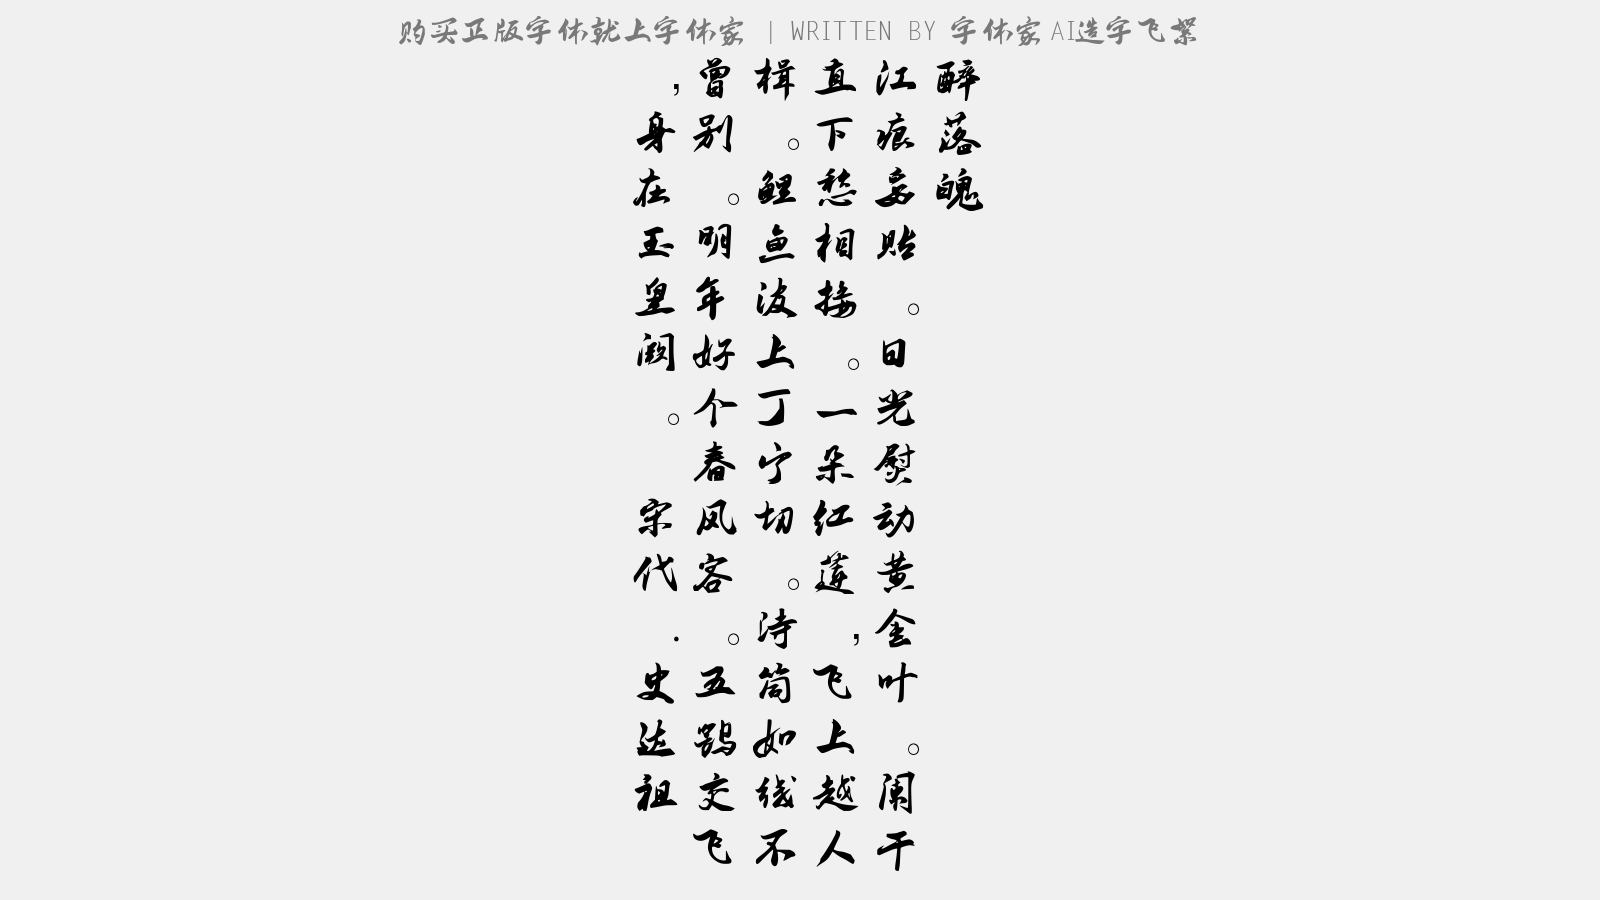 购买正版字体就上字体家 | WRITTEN BY 字体家AI造字飞絮
醉落魄
江痕妥贴。日光熨动黄金叶。阑干
直下愁相接。一朵红莲,飞上越人
楫。鲤鱼波上丁宁切。诗筒如线不
曾别。明年好个春风客。五鹗交飞
,身在玉皇阙。 宋代.史达祖